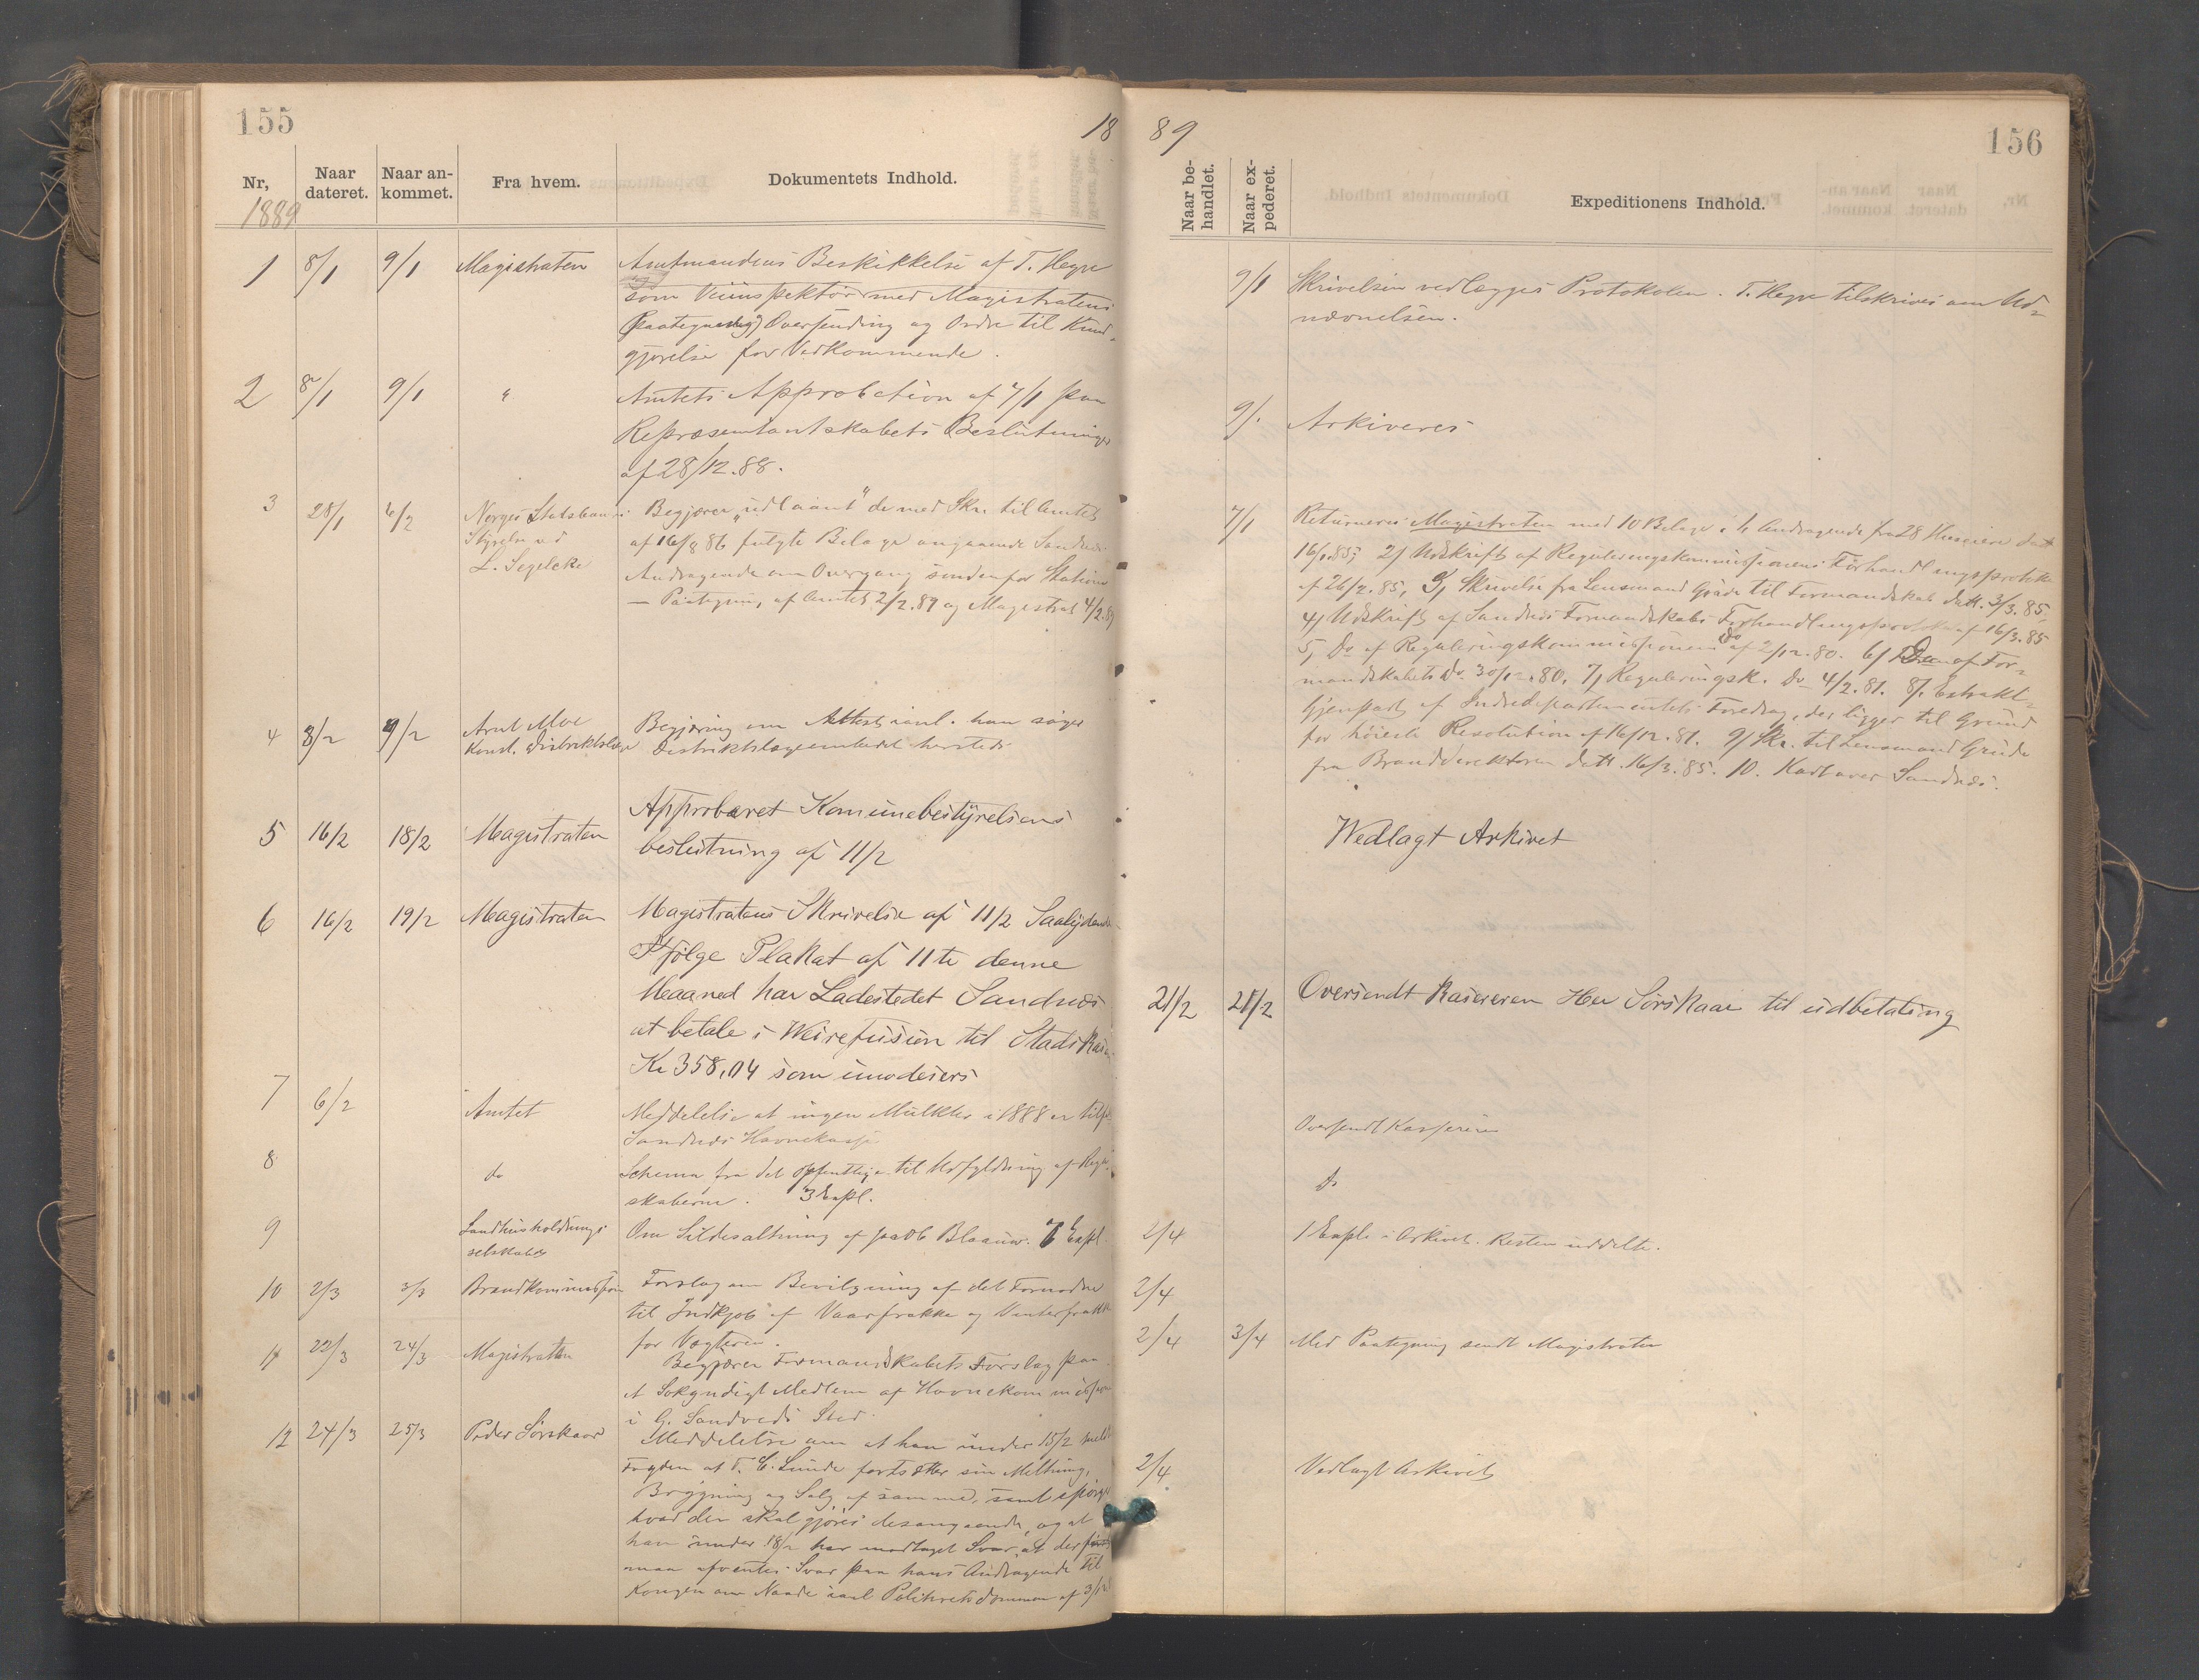 155
18
Nr,
1889
Naar
dateret.
Naar an-
kommet.
Fra hvem.
Dokumentets Indhold.
1 8/1 9/1 Magistraten Amtmandens Beskikkelse af T. Hegre
som Veiinspektör med Magistratens
Paategning, Oversending og Ordre til Kund-
gjørelse for Vedkommende.
2 8/1 9/1 " Amtets Approbation af 7/1 paa
Repræsentantskabets Beslutninger
af 28/12.88.
3 28/1 6/2 Norges Statsbaners
Styrelse ved
L. Segelcke
Begjærer "udlaant" de med Skr. til Amtet
af 16/8 86 fulgte Bilage angaaende Sandnes
Andragende om Overgang søndenfor Station
— Paategning af Amtet 2/2.89 og Magistrat 4/2.89
4 8/2 9/2 Arnt Moe
Konst. Distriktslæge
Begjæring om Attest i anl. han søger
Distriktslægeembedet hersteds
5 16/2 18/2 Magistraten Approberet Komunebestyrelsens
beslutning af 11/2
6 16/2 19/2 Magistraten Magistratens Skrivelse af 11/2 Saalydende
Ifölge Plakat af 11te denne
Maaned har Ladestedet Sandnes
at betale i Weirefusion til Stads
Kr 358,04 som imodesees
7 6/2 Amtet Meddelelse at ingen Mulkter i 1888 er
Sandnes Havnekasse
8 do Schema fra det offentlige til Udfyldning af
skaberne. 3 Expl.
9 Landhusholdnings
selskabet
Om Sildesaltning af Jacob Blaauw. 6 Expl.
10 2/3 3/3 Brandkommission Forslag om Bevilgning af det Fornødne
til Indkjøb af Vaarfrakke og Vinterfrakke
for Vægteren.
11 22/3 24/3 Magistraten Begjærer Formandskabets Forslag paa
et Søkyndigt Medlem af Havnekommission
i G. Sandveds Sted.
12 24/3 25/3 Peder Sörskaar Meddelelse om at han under 15/2
Fogden at T. C. Lunde fortsætter sin Meltning,
Brygning og Salg af samme, samt spörger
hvad der skal gjøres desangaaende, og at
han under 18/2 har modtaget Svar at der
maa afventes Svar paa hans Andragende til
Kongen om Naade i anl Politiretsdommen af
89
156
Naar be-
handlet.
Naar ex-
pederet.
Expeditionens Indhold.
9/1 Skrivelsen vedlægges Protokolen. T. Hegre tilskrives om Ud-
nævnelsen.
9/1 Arkiveres
7/1 Returneres Magistraten med 10 Bilage: 1, Andragende fra 28 Huseiere dat
16/1.85; 2/ Udskrift af Reguleringskommissionens Forhandlingsprotokol
af 26/2.85, 3/ Skrivelse fra Lensmand Gjude til Formandskab datt. 3/3.85,
4/ Udskrift af Sandnes Formandskabs Forhandlingsprotokol af 16/3.85
5, Do af Reguleringskommissionens Do af 2/12.80. 6/ Do af For-
mandskabets Do. 30/12.80, 7/ Reguleringsk. Do 4/2.81. 8/. Extrakt-
Gjenpart af Indredepartementets Foredrag, der ligger til Grund
for höieste Resolution af 16/12.81. 9/ Skr. til Lensmand Gjude
fra Branddirektören datt. 16/3.85. 10. Kart over Sandnes.
Wedlagt Arkivet
21/2 21/2 Oversendt Kassereren Herr Sörskaar til udbetaling
Oversendt Kassereren
Do
2/4 1 Expl. i Arkivet. Resten uddelte.
2/4
2/4 3/4 Med Paategning sendt Magistraten
2/4 Vedlagt Arkivet